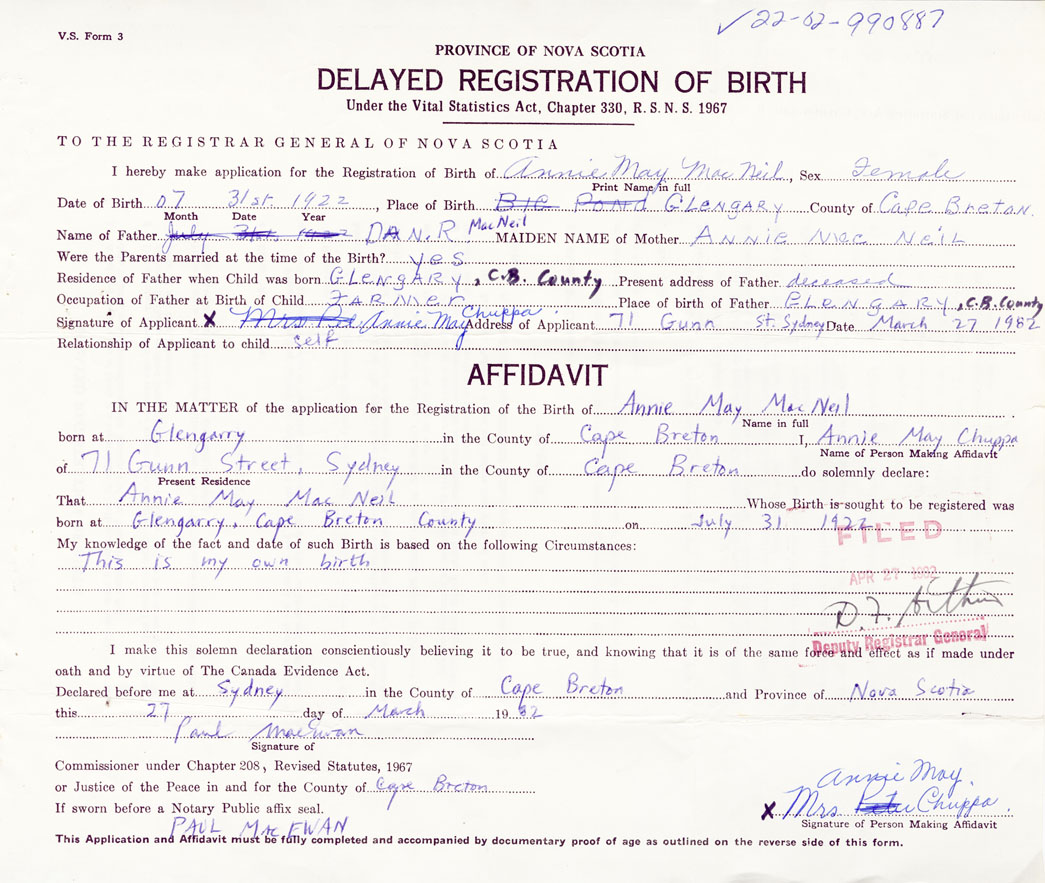 ✓22-02-990887
V.S. Form 3
PROVINCE OF NOVA SCOTIA
DELAYED REGISTRATION OF BIRTH
Under the Vital Statistics Act, Chapter 330, R.S.N.S. 1967
TO THE REGISTRAR GENERAL OF NOVA SCOTIA
I hereby make application for the Registration of Birth of Annie May MacNeil, Sex Female
Print Name in full
Date of Birth 07 31st. 1922, Place of Birth Big Pond GLENGARY County of Cape Breton.
Month Date Year
Name of Father July 31st. 1922 DAN. R. MacNeil MAIDEN NAME of Mother ANNIE Mac NEIL
Were the Parents married at the time of the Birth? yes
Residence of Father when Child was born GLENGARY, C.B. County Present address of Father deceased
Occupation of Father at Birth of Child FARMER Place of birth of Father GLENGARY, C.B. County
Signature of Applicant X Mrs Annie May Chuppa Address of Applicant 71 Gunn St. Sydney Date March 27 1982
Relationship of Applicant to child self
AFFIDAVIT
IN THE MATTER of the application for the Registration of the Birth of Annie May MacNeil
Name in full
born at Glengarry in the County of Cape Breton I, Annie May Chuppa
Name of Person Making Affidavit
of 71 Gunn Street, Sydney in the County of Cape Breton do solemnly declare:
Present Residence
That Annie May MacNeil Whose Birth is sought to be registered was
born at Glengarry, Cape Breton County on July 31 1922
My knowledge of the fact and date of such Birth is based on the following Circumstances:
FILED
This is my own birth
APR 27 1982
D.F. Arthur
Deputy Registrar General
I make this solemn declaration conscientiously believing it to be true, and knowing that it is of the same force and effect as if made under
oath and by virtue of The Canada Evidence Act.
Declared before me at Sydney in the County of Cape Breton and Province of Nova Scotia
this 27 day of March 1982
Paul MacEwan
Signature of
Commissioner under Chapter 208, Revised Statutes, 1967
or Justice of the Peace in and for the County of Cape Breton
If sworn before a Notary Public affix seal.
PAUL MacEWAN
Annie May.
X Mrs Peter Chuppa.
Signature of Person Making Affidavit
This Application and Affidavit must be fully completed and accompanied by documentary proof of age as outlined on the reverse side of this form.